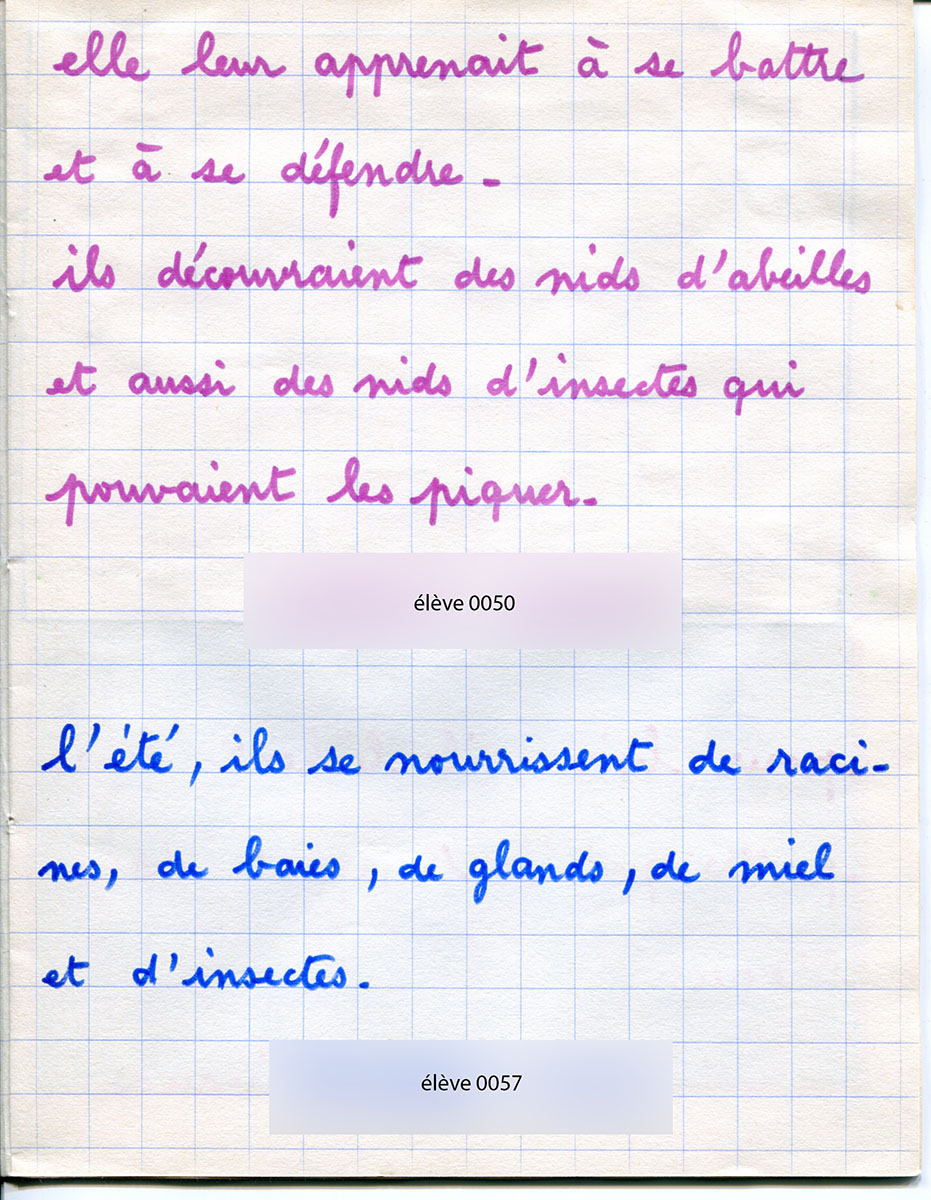 elle leur apprenait à se battre
et à se défendre -
ils découvraient des nids d'abeilles
et aussi des nids d'insectes qui
pouvaient les piquer -
élève 0050
l'été, ils se nourrissent de raci-
nes, de baies, de glands, de miel
et d'insectes.
élève 0057